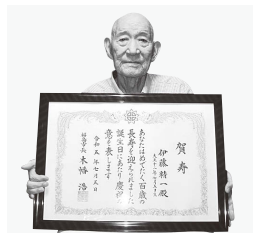 賀寿
伊藤精一殿
あなたはめでたく百歳の
長寿を迎えられました
誕生日にあたり慶祝の
意を表します
令和五年七月五日
福島市長 木幡浩